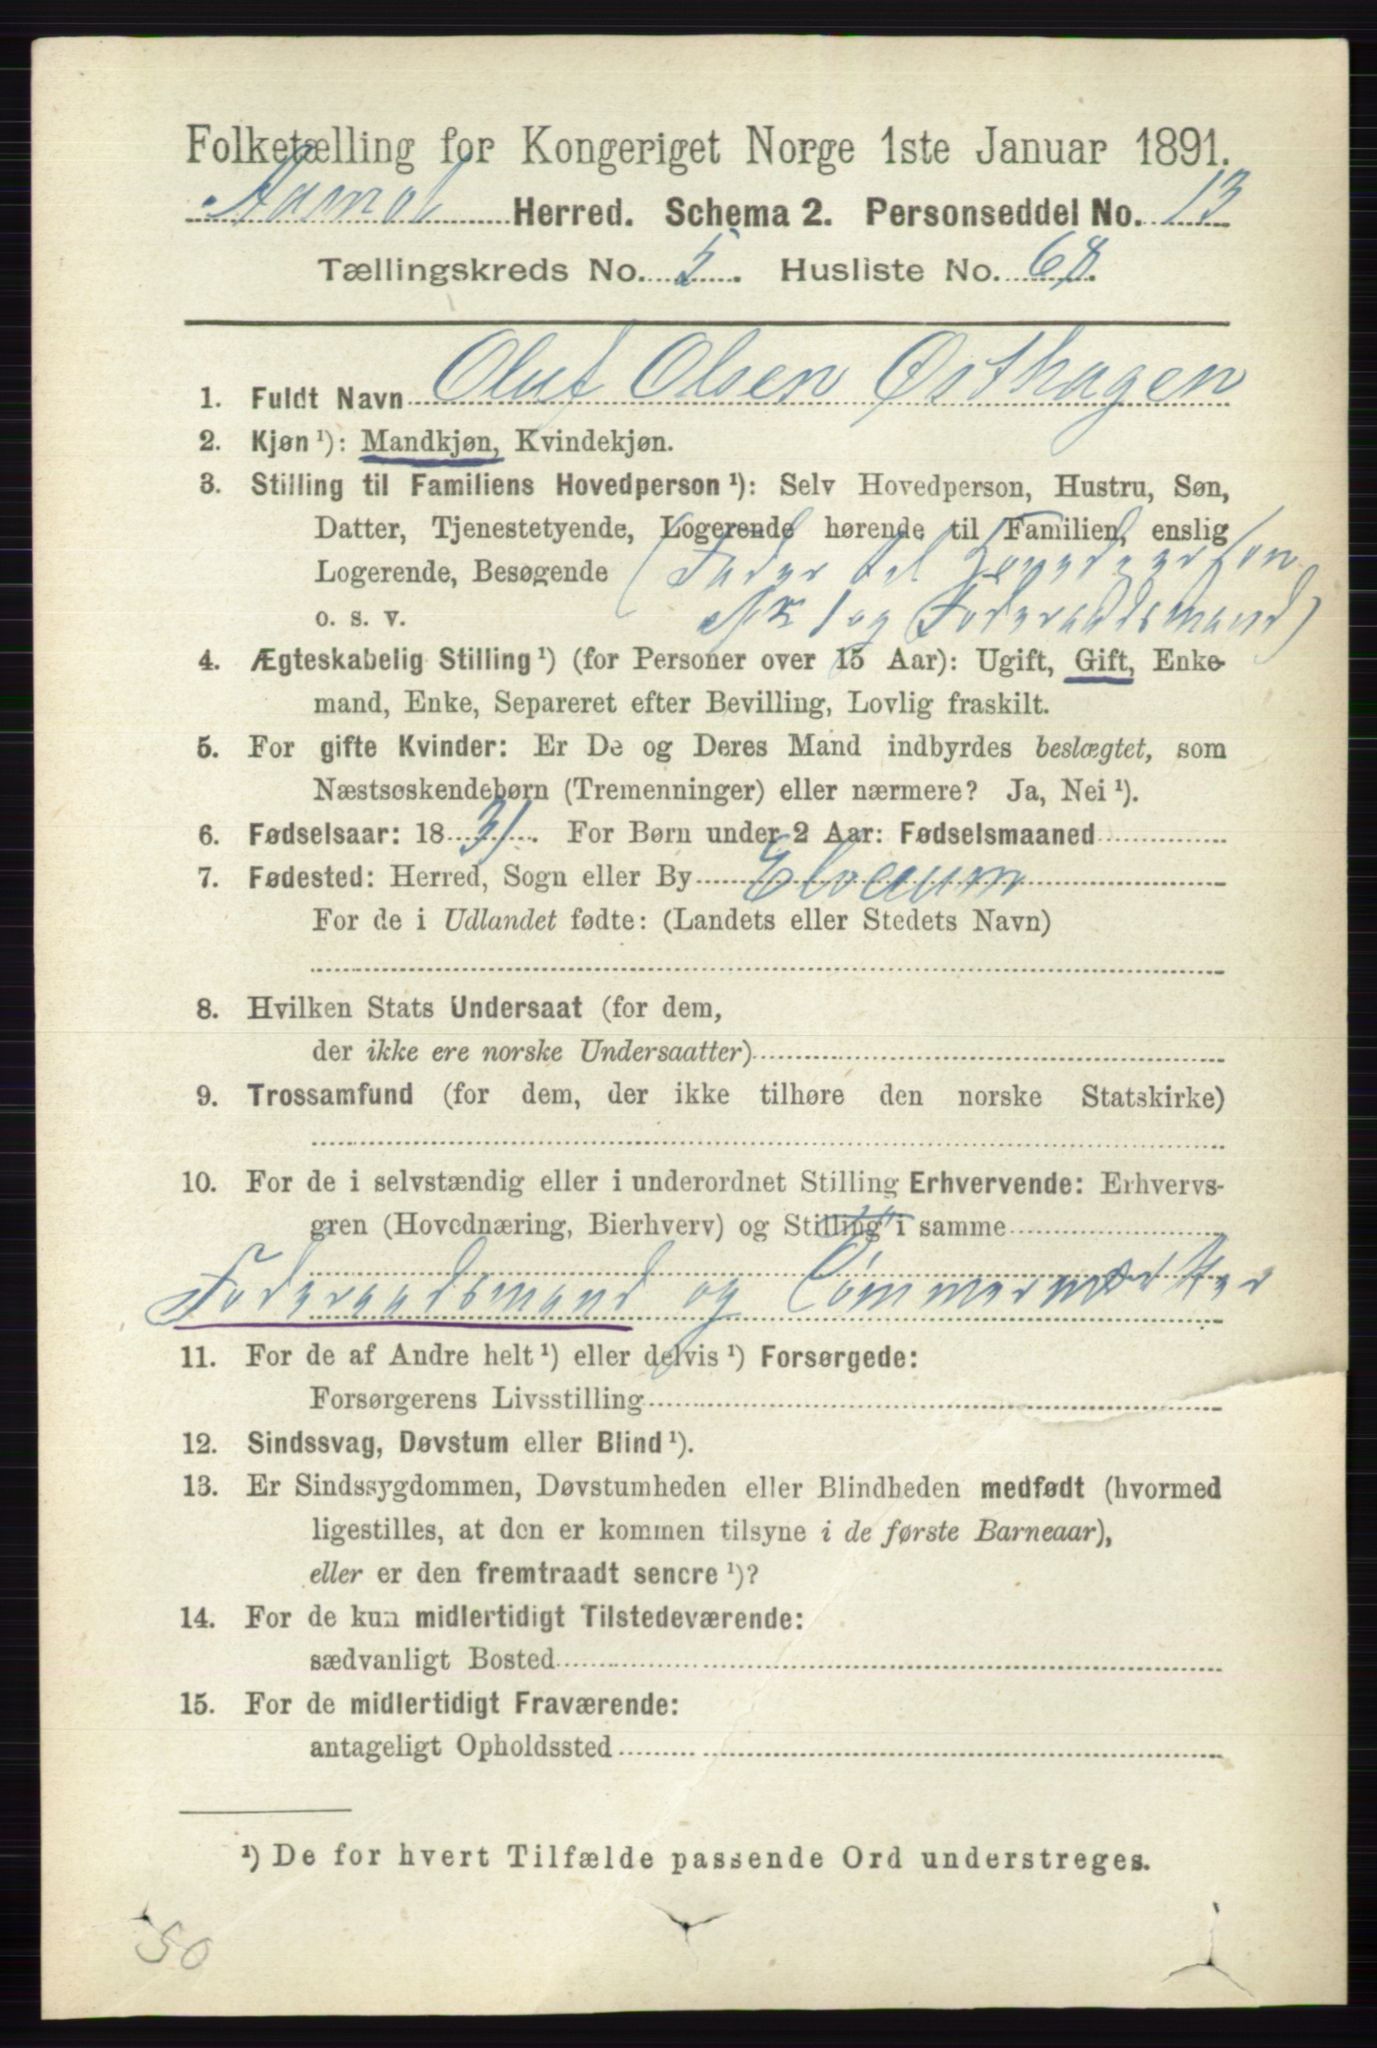 Folketælling for Kongeriget Norge 1ste Januar 1891.
Aamot Herred. Schema 2. Personseddel No. 13
Tællingskreds No. 5. Husliste No. 68.
1. Fuldt Navn Oluf Olsen Østhagen
2. Kjøn ¹): Mandkjøn, Kvindekjøn.
3. Stilling til Familiens Hovedperson ¹): Selv Hovedperson, Hustru, Søn,
Datter, Tjenestetyende, Logerende hørende til Familien, enslig
Logerende, Besøgende (Fader til Hovedperson
o. s. v. 1 og Føderaadsmand)
4. Ægteskabelig Stilling ¹) (for Personer over 15 Aar): Ugift, Gift, Enke-
mand, Enke, Separeret efter Bevilling, Lovlig fraskilt.
5. For gifte Kvinder: Er De og Deres Mand indbyrdes beslægtet, som
Næstsøskendebørn (Tremenninger) eller nærmere? Ja, Nei ¹).
6. Fødselsaar: 1831. For Børn under 2 Aar: Fødselsmaaned
7. Fødested: Herred, Sogn eller By Elverum
For de i Udlandet fødte: (Landets eller Stedets Navn)
8. Hvilken Stats Undersaat (for dem,
der ikke ere norske Undersaatter)
9. Trossamfund (for dem, der ikke tilhøre den norske Statskirke)
10. For de i selvstændig eller i underordnet Stilling Erhvervende: Erhvervs-
gren (Hovednæring, Bierhverv) og Stilling i samme
Føderaadsmand og Tømmermærker
11. For de af Andre helt ¹) eller delvis ¹) Forsørgede:
Forsørgerens Livsstilling
12. Sindssvag, Døvstum eller Blind ¹).
13. Er Sindssygdommen, Døvstumheden eller Blindheden medfødt (hvormed
ligestilles, at den er kommen tilsyne i de første Barneaar),
eller er den fremtraadt senere ¹)?
14. For de kun midlertidigt Tilstedeværende:
sædvanligt Bosted
15. For de midlertidigt Fraværende:
antageligt Opholdssted
¹) De for hvert Tilfælde passende Ord understreges.
50